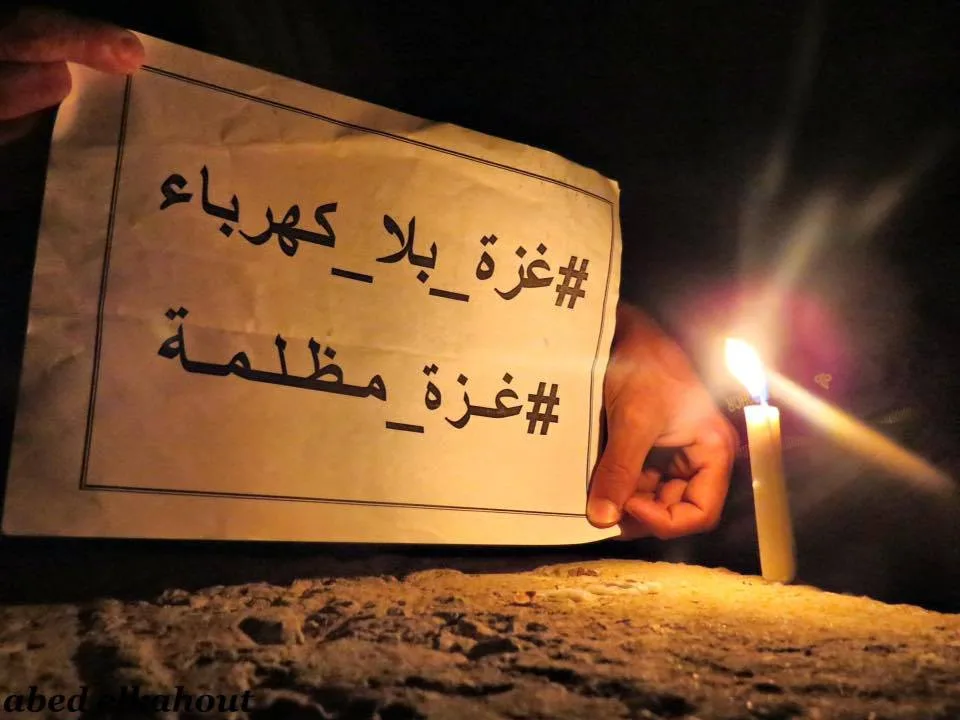 #غزة_بلا_كهرباء
#غزة_مظلمة
abed elkahout